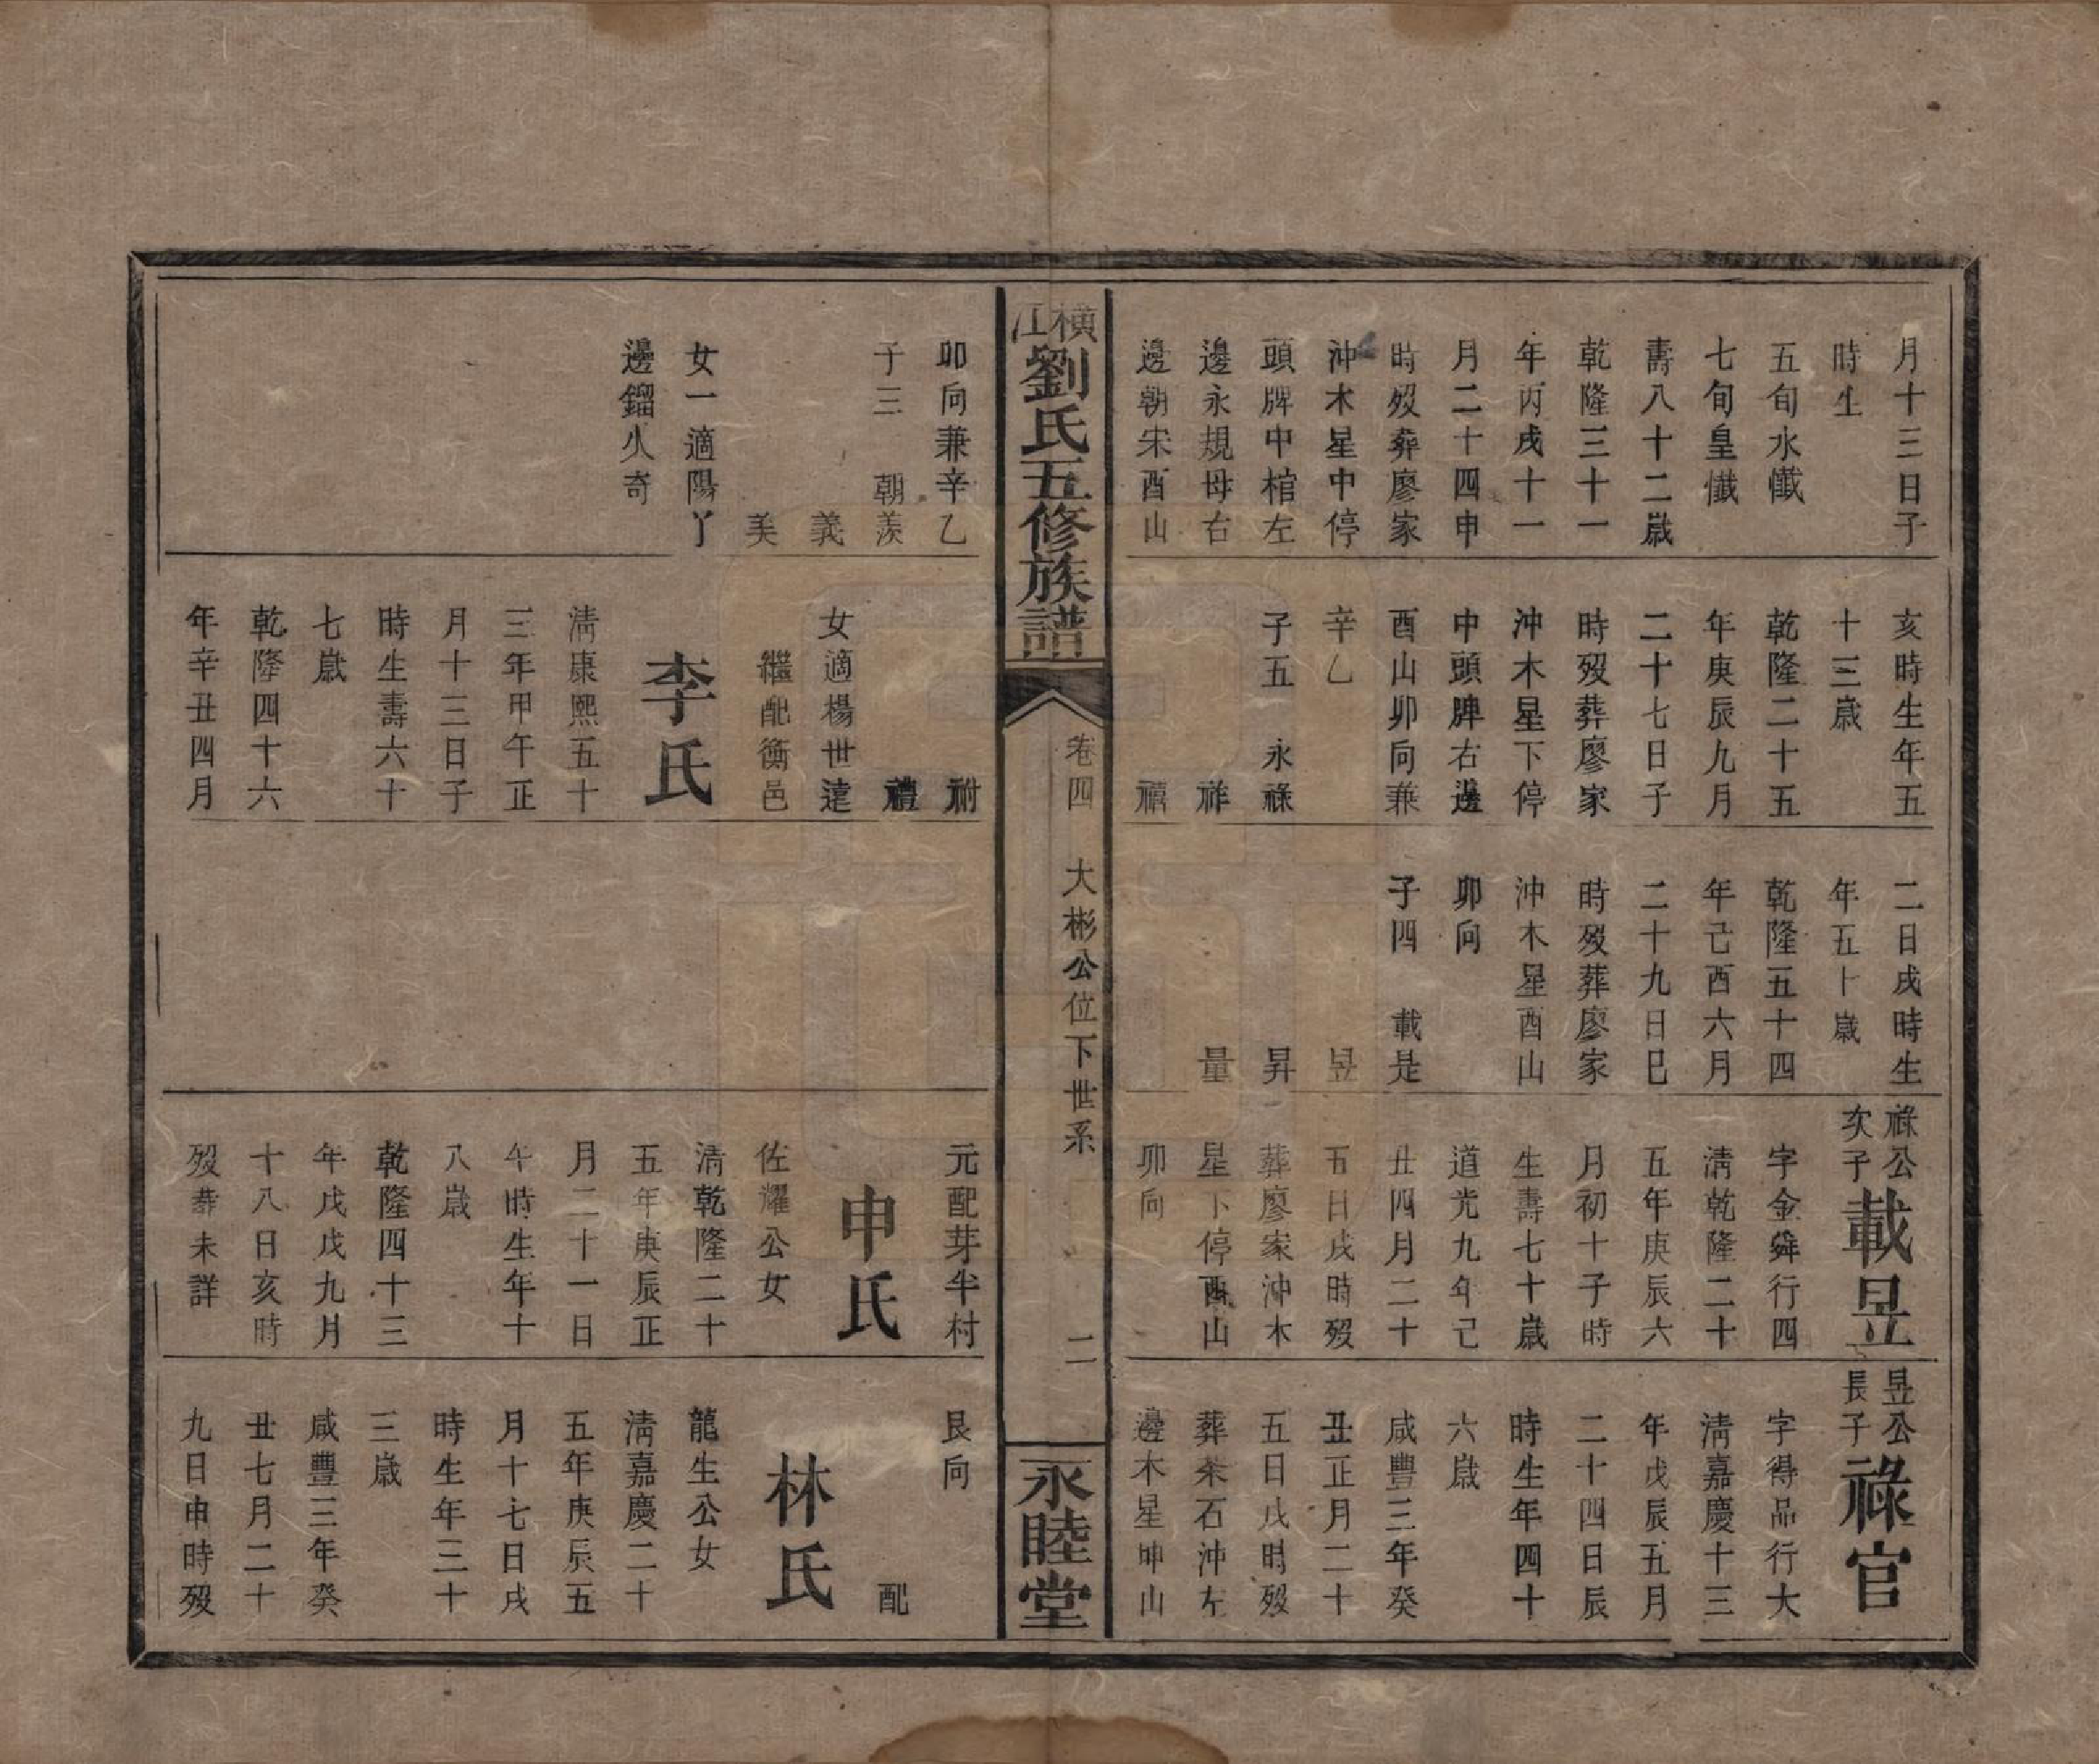 月十三日子
時生
五旬水懺
七旬皇懺
壽八十二歲
乾隆三十一
年丙戌十一
月二十四申
時歿葬廖家
沖木星中停
頭牌中棺左
邊永規母右
邊朝宋酉山
亥時生年五
十三歲
乾隆二十五
年庚辰九月
二十七日子
時歿葬廖家
沖木星下停
中頭牌右邊
酉山卯向兼
辛乙
子五 永祿
祥
禧
二日戌時生
年五十歲
乾隆五十四
年己酉六月
二十九日巳
時歿葬廖家
沖木星酉山
卯向
子四 載是
昱
昇
量
祿公次子載昱
字金舜行四
清乾隆二十
五年庚辰六
月初十子時
生壽七十歲
道光九年己
丑四月二十
五日戌時歿
葬廖家沖木
星下停酉山
卯向
昱公長子祿官
字得品行大
清嘉慶十三
年戊辰五月
二十四日辰
時生年四十
六歲
咸豐三年癸
丑正月二十
五日戌時歿
葬茶石沖左
邊木星坤山
橫江劉氏五修族譜
卷四 大彬公位下世系 二
永睦堂
卯向兼辛乙
子三 朝羨
義
美
女一適陽丫
邊鎦火奇
祔
禮
女適楊世達
繼配衡邑
李氏
清康熙五十
三年甲午正
月十三日子
時生壽六十
七歲
乾隆四十六
年辛丑四月
元配芽半村
申氏
佐耀公女
清乾隆二十
五年庚辰正
月二十一日
午時生年十
八歲
乾隆四十三
年戊戌九月
十八日亥時
歿葬未詳
艮向
配
林氏
龍生公女
清嘉慶二十
五年庚辰五
月十七日戌
時生年三十
三歲
咸豐三年癸
丑七月二十
九日申時歿